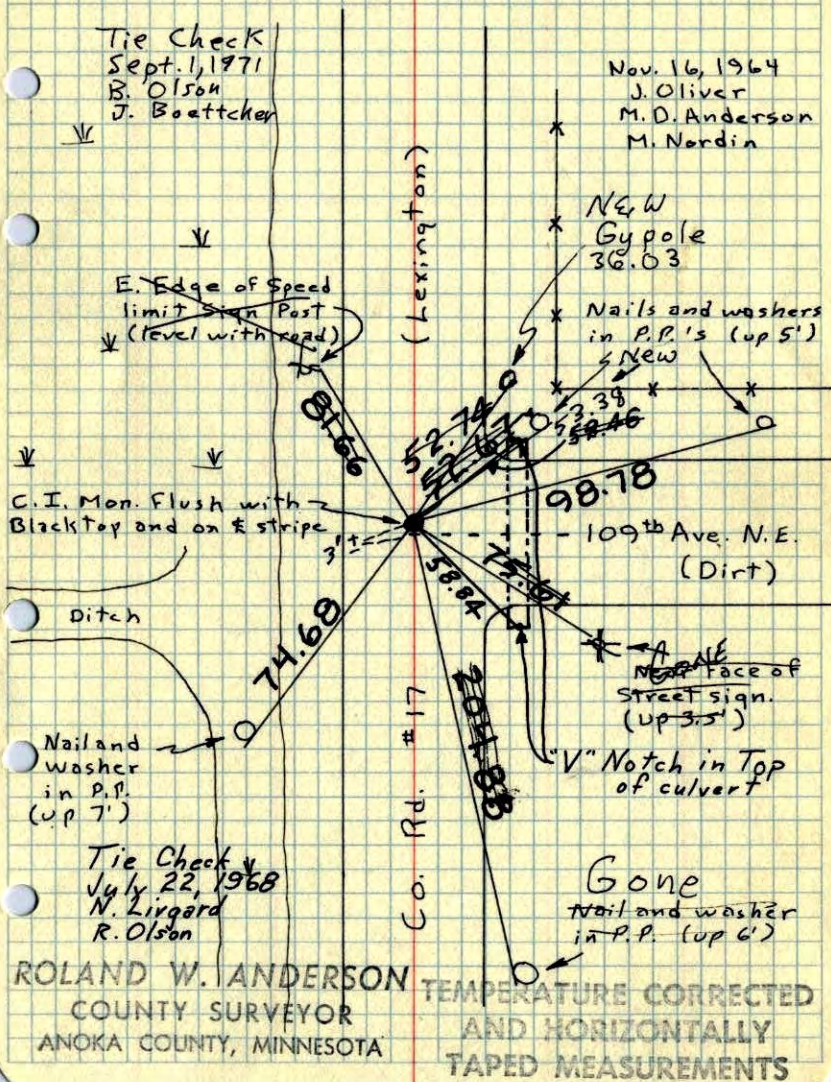 Tie Check
Sept. 1, 1971
B. Olson
J. Boettcher
Nov. 16, 1964
J. Oliver
M. D. Anderson
M. Nordin
(Lexington)
New
Gy pole
36.03
E. Edge of Speed
limit Sign Post
(level with road)
Nails and washers
in P.P.'s (up 5')
New
81.66
52.74
52.67
53.38
98.78
C.I. Mon. Flush with
Blacktop and on ℄ stripe
3'±
109th Ave. N.E.
(Dirt)
58.84
75.61
Ditch
74.68
Gone
face of
Street sign.
(up 3.5')
Co. Rd. #17
204.88
Nail and
washer
in P.P.
(up 7')
"V" Notch in Top
of culvert
Tie Check
July 22, 1968
N. Livgard
R. Olson
Gone
Nail and washer
in P.P. (up 6')
ROLAND W. ANDERSON
COUNTY SURVEYOR
ANOKA COUNTY, MINNESOTA
TEMPERATURE CORRECTED
AND HORIZONTALLY
TAPED MEASUREMENTS